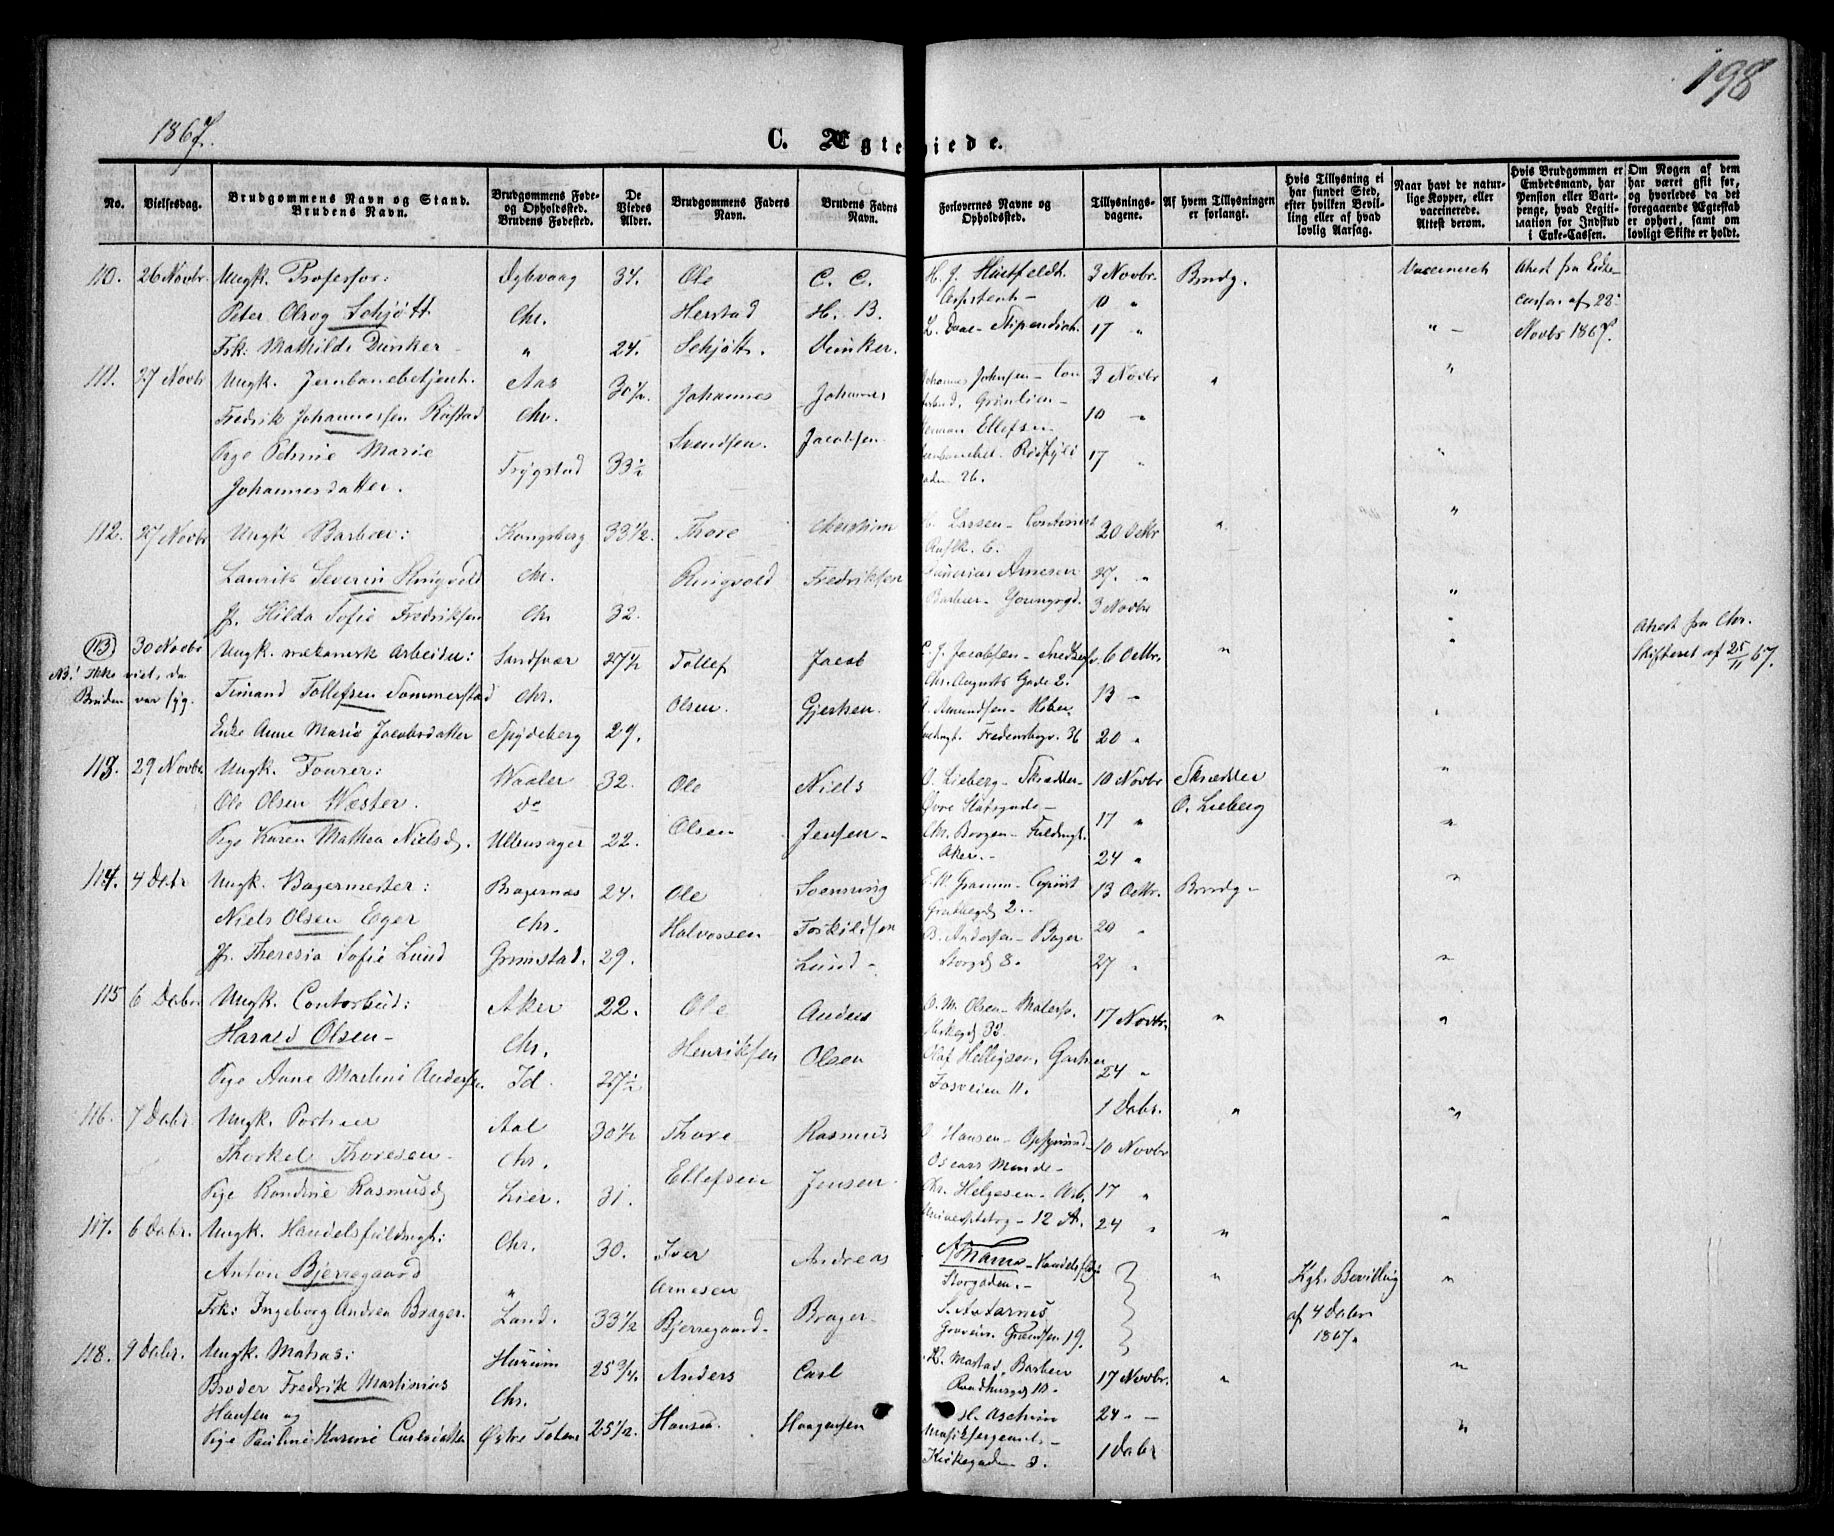 198
1867.
C. Ægteviede.
No.
Vielsesdag.
Brudgommens Navn og Stand.
Brudens Navn.
Brudgommens Føde-
og Opholdssted.
Brudens Fødested.
De
Viedes
Alder.
Brudgommens Faders
Navn.
Brudens Faders
Navn.
Forlovernes Navne og
Opholdssted.
Tillysnings-
dagene.
Af hvem Tillysningen
er forlangt.
Hvis Tillysning ei
har fundet Sted,
efter hvilken Bevil-
ling eller af hvad
lovlig Aarsag.
Naar havt de natur-
lige Kopper, eller
vaccinerede.
Attest derom.
Hvis Brudgommen er
Embedsmand, har
Pension eller Vart-
penge, hvad Legiti-
mation for Indskud
i Enke-Cassen.
Om Nogen af dem
har været gift før,
og hvorledes da det
foregaaende Ægteskab
er ophørt, samt om
lovligt Skifte er holdt.
110. 26 Novbr. Ungk. Professor: Dybvaag 34. Ole C. C. H. J. Huitfeldt 3 Novbr. Brudg. Vaccineret Attest fra Enke-
Peter Olrog Schjøtt Chr. Herstad H. B. 10 " cassen af 23
Frk: Mathilde Dunker " 24. Schjøtt. Dunker. L. Daae - Stipendiat 17 " " Novbr 1867.
111. 27 Novbr Ungk. Jernbanebetjent. Aas 30 1/2. Johannes Johannes Johannes Johnsen 3 Novbr " "
Fredrik Johannessen Røstad Chr. Grønlien 10 "
Pige Petrine Marie Trygstad 33 1/2 Svendsen. Jacobsen Herman Ellefsen 17 " "
Johannesdatter. 26.
112. 27 Novbr Ungk Barbeer: Kongsberg 33 1/2. Thore Christian Lassen - Contorist 20 Octbr " "
Laurits Severin Ringvold Chr. Ringvold Fredriksen Arnesen 27. "
Jf. Hilda Sofie Fredriksen Chr 32. Barbeer 3 Novbr "
(113) 30 Novbr Ungk. mekanisk Arbeider: Sandsvær 27 1/2 Tollef Jacob J. Jacobsen 6 Octbr. " " Attest fra Chr.
NB! Ikke viet, da Chr. Augusts Gade 2. Skifteret af 25/11 67.
Bruden var syg. Timand Tollefsen Sommerstad Chr. Olsen. Gjersken. Amundsen 13 "
Enke Anne Marie Jacobsdatter Spydeberg 29. Fredensbgv. 36 20 "
113. 29 Novbr. Ungk. Fourer: Waaler 32. Ole Niels O. Lieberg - Skrædder 10 Novbr Skrædder "
Ole Olsen Wæster. Do Øvre Slotsgade - 17 " O. Lieberg
Pige Karen Mathea Nielsd. Ullensager 22. Olsen Jensen - Chr. Borgen - Fuldmgt. "
Aker. - 24 "
114. 4 Decbr Ungk. Bagermester: Bragernæs 24. Ole Svenning Copiist 13 Octbr. Brudg - "
Niels Olsen Eger Chr. Halvorsen Torkildsen 2. 20 "
Jf. Theresia Sofie Lund Grimstad. 29. Lund - B. Andersen - Bager "
Storgd 8. 27 "
115 6 Decbr Ungk. Contorbud: Aker 22. Ole Anders O. M. Olsen - Malersv. 17 Novbr. " "
Harald Olsen - Chr. Henriksen Olsen Olaf Hellesen, Gartner
Pige Anne Martine Andersen Id. 27 1/2 Fosveien 11. 24 "
1 Decbr.
116. 7 Decbr. Ungk. Portner Aal 30 1/2 Thore Rasmus Hansen - Opsynsmd 10 Novbr " "
Thorkel Thoresen - Chr. Oscars Minde -
Pige Randine Rasmusd Lier. 31. Ellefsen Jensen Chr. Helgesen - Arb. 17 "
12 A. 24 " "
117. 6 Decbr. Ungk. Handelsfuldmgt: Chr. 30. Iver Andreas Handelsfldm. " Kgl. Bevilling "
Anton Bjerregaard Arnesen Storgaden. - af 4 Decbr
Frk: Ingeborg Andrea Brager. Land. 33 1/2 Bjerregaard. Brager. 19. 1867.
118. 9 Decbr. Ungk. Matros: Hurum 25 3/4. Anders Carl Mostad, Barbeer 17 Novbr. " "
Broder Fredrik Martinius Chr. Raadhusgd 10.
Hansen og H. Aschim 24 "
Pige Pauline Karine Carlsdatter Østre Toten 25 1/2. Hansen. Haagensen Musiksergeant - "
Kirkegaden 3. 1 Decbr